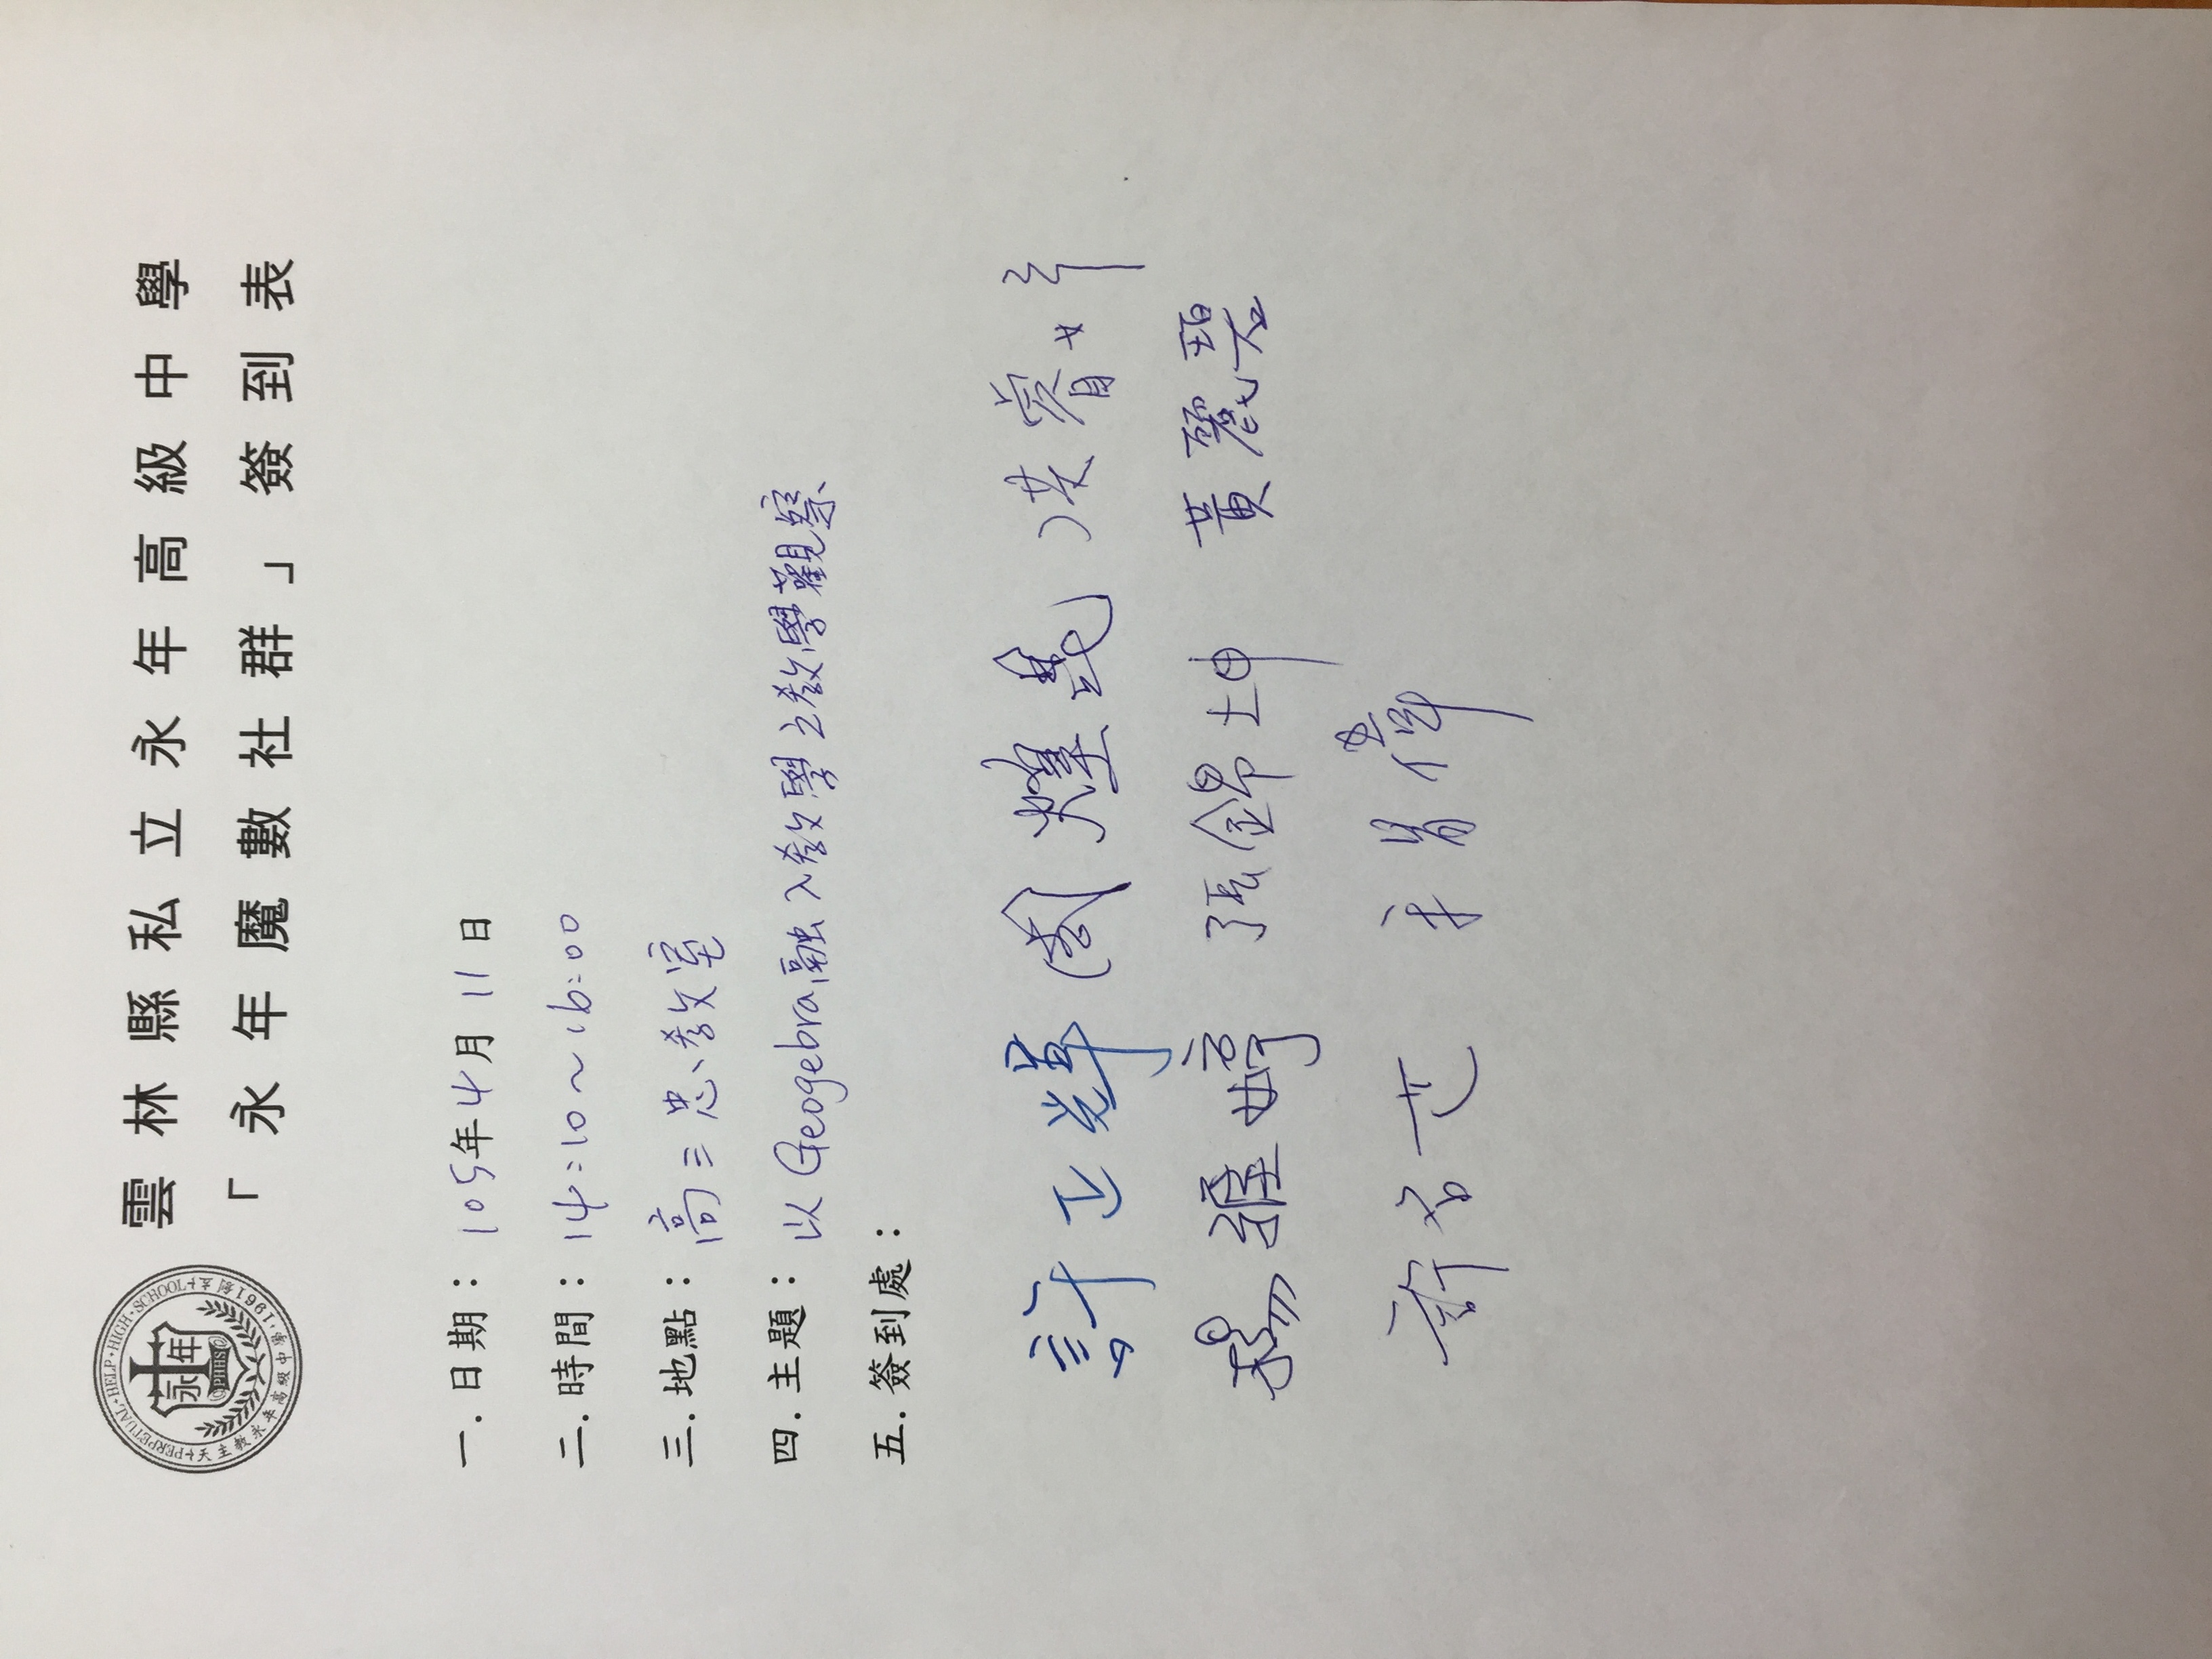 雲林縣私立永年高級中學
「永年魔數社群」簽到表
PERPETUAL·HELP·HIGH·SCHOOL
天主教永年高級中學
1961
永年
PHHS
一.日期：105年4月11日
二.時間：14:10～16:00
三.地點：高三忠教室
四.主題：以Geogebra融入教學之教學觀察
五.簽到處：
許正輝
楊雅婷 張錦坤 黃麗碧